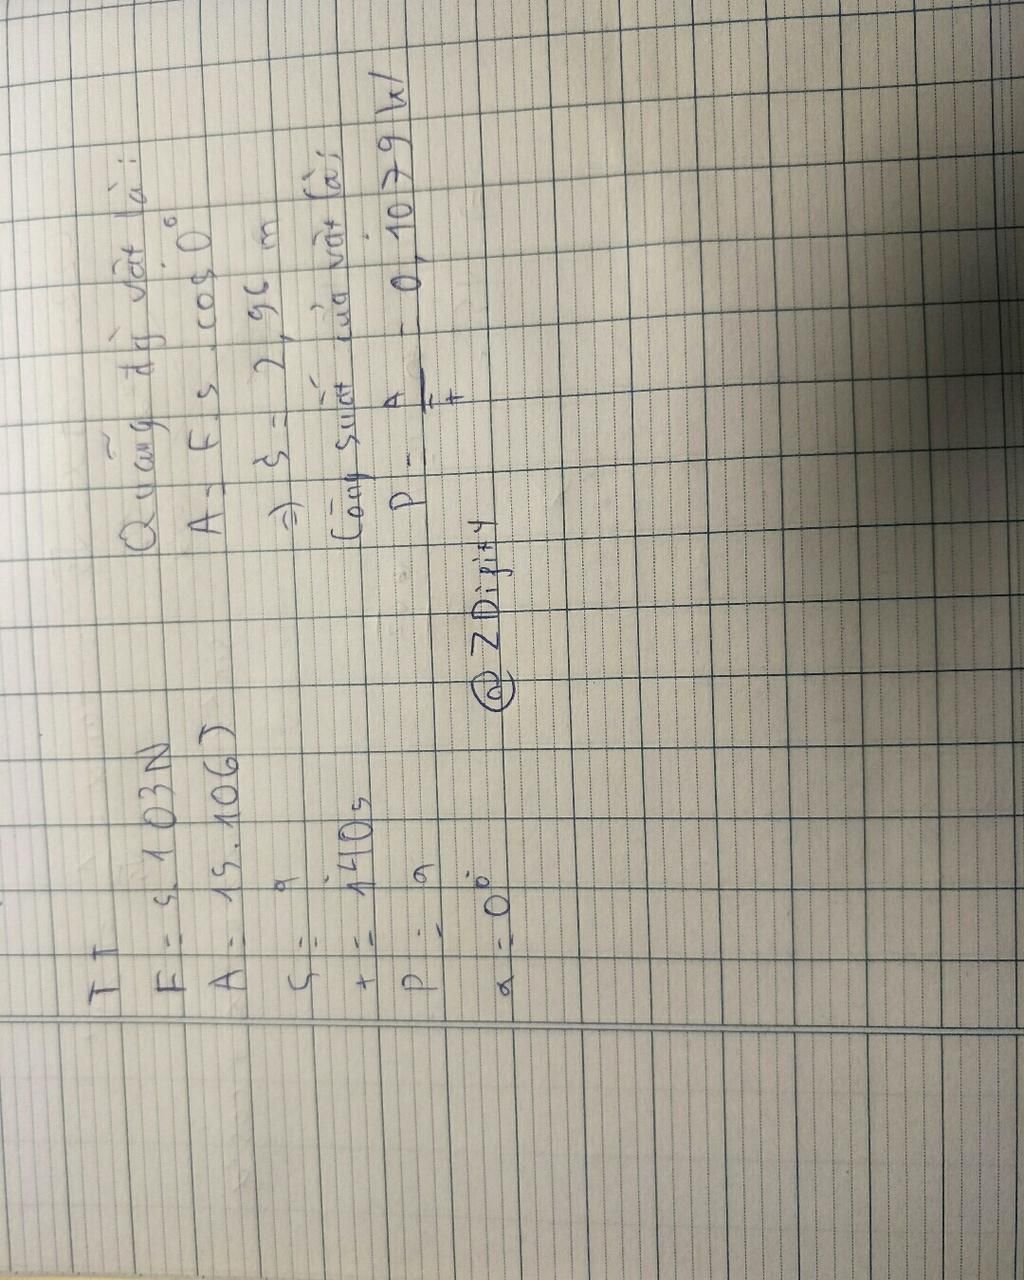 TT
F = 5.103N
A = 15.106J
S = ?
t = 140s
P = ?
α = 0°
Quãng đg vật là:
A = F.s.cos0°
=> S = 2,96 m
Công suất của vật là:
P = A/t = 0,1079 W
@ZDigity